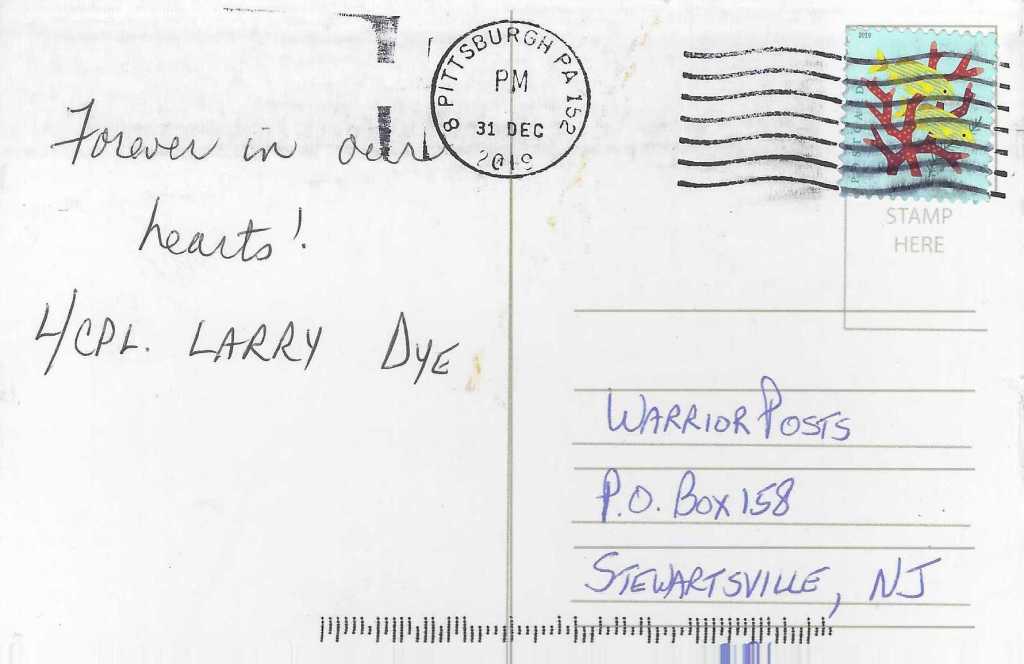 Forever in our
hearts!
L/CPL. LARRY DYE
PITTSBURGH PA 152
PM
31 DEC
2019
8
2019
STAMP
HERE
WARRIOR POSTS
P.O. BOX 158
STEWARTSVILLE, NJ